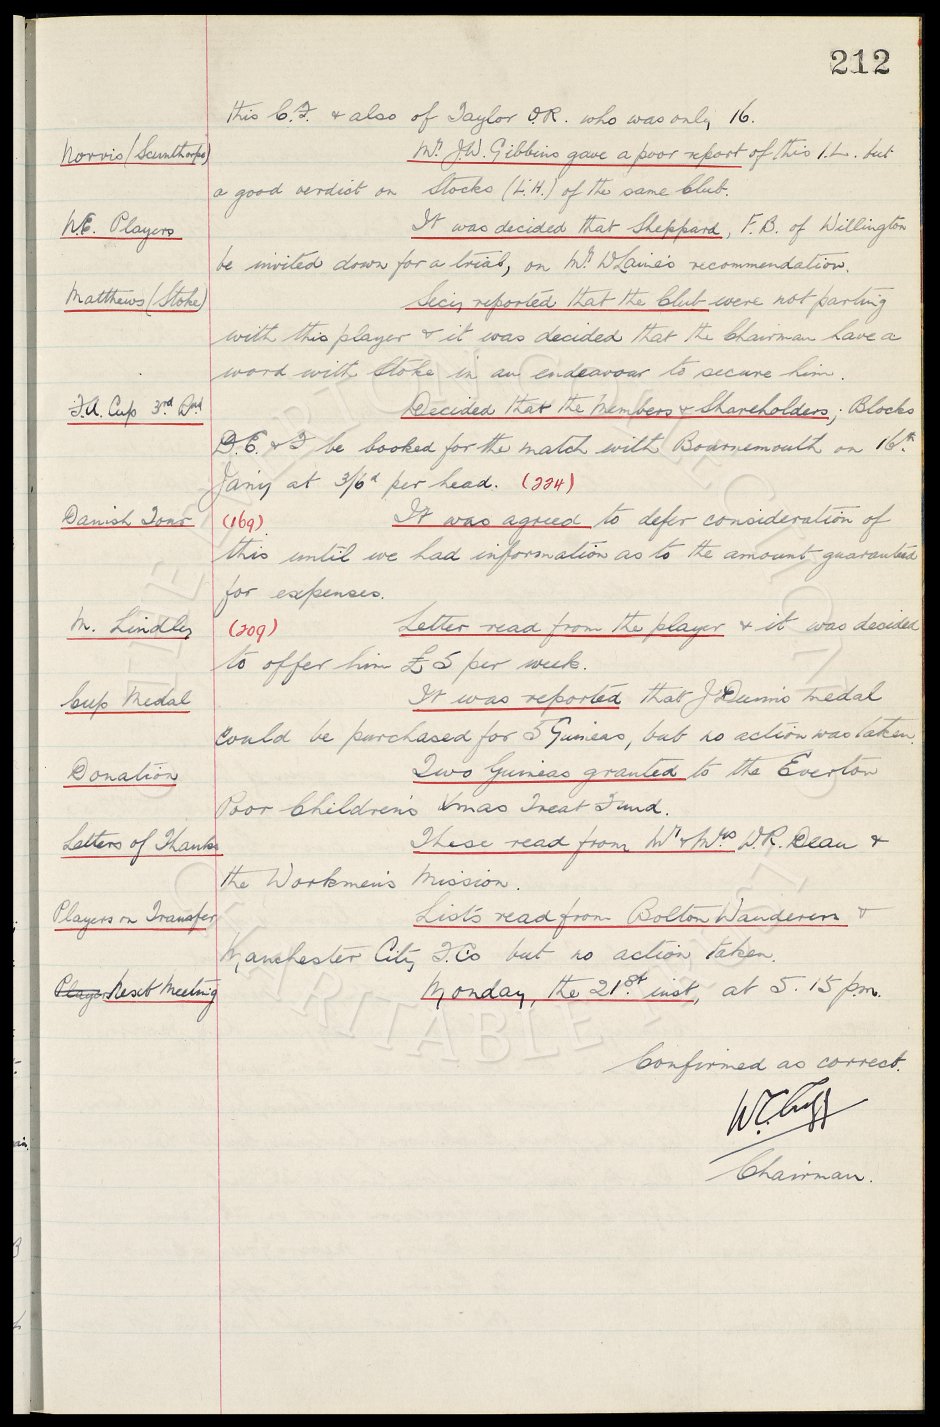 212
this C.F. & also of Taylor O.R. who was only 16.
Norris (Scunthorpe) Mr. J.W. Gibbins gave a poor report of this I.L. but
a good verdict on Stocks (L.H.) of the same Club.
N.E. Players It was decided that Sheppard, F.B. of Willington
be invited down for a trial, on Mr. McLaine's recommendation.
Matthews (Stoke) Secy reported that the Club were not parting
with this player & it was decided that the Chairman have a
word with Stoke in an endeavour to secure him.
F.A. Cup 3rd Rnd Decided that the Members & Shareholders, Blocks
D.E. & F be booked for the match with Bournemouth on 16th.
Jan'y at 3/6d per head. (224)
Danish Tour (169) It was agreed to defer consideration of
this until we had information as to the amount guaranteed
for expenses.
M. Lindley (209) Letter read from the player & it was decided
to offer him £5 per week.
Cup Medal It was reported that J. Dunn's medal
could be purchased for 5 Guineas, but no action was taken.
Donation Two Guineas granted to the Everton
Poor Children's Xmas Treat Fund.
Letters of Thanks These read from Mr & Mrs W.R. Dean &
the Workmen's Mission.
Players on Transfer Lists read from Bolton Wanderers &
Manchester City F.C's but no action taken.
Player Next Meeting Monday, the 21st. inst, at 5.15 p.m.
Confirmed as correct.
W.C. Cuff
Chairman.
THE EVERTON COLLECTION
CHARITABLE TRUST